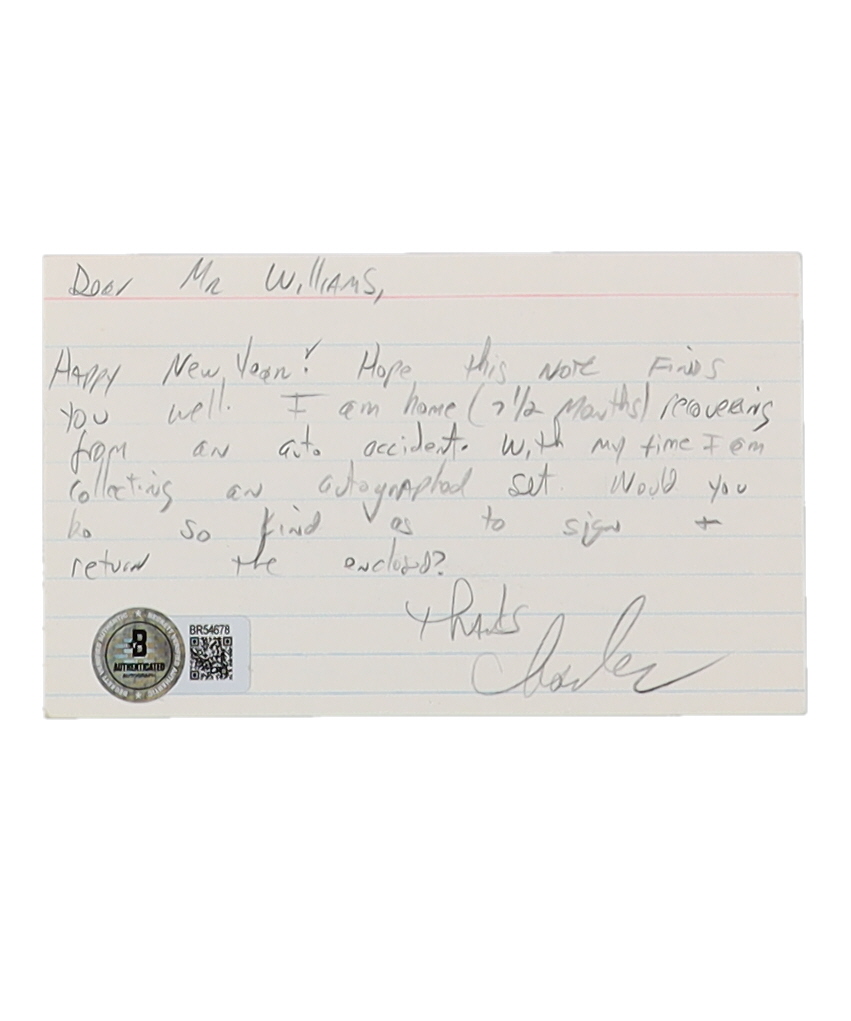 Dear Mr Williams,
Happy New Year! Hope this note finds
you well. I am home (7 1/2 months) recovering
from an auto accident. With my time I am
collecting an autographed set. Would you
be so kind as to sign +
return the enclosed?
Thanks
Charles
B
AUTHENTICATED
AUTOGRAPH
BR54678